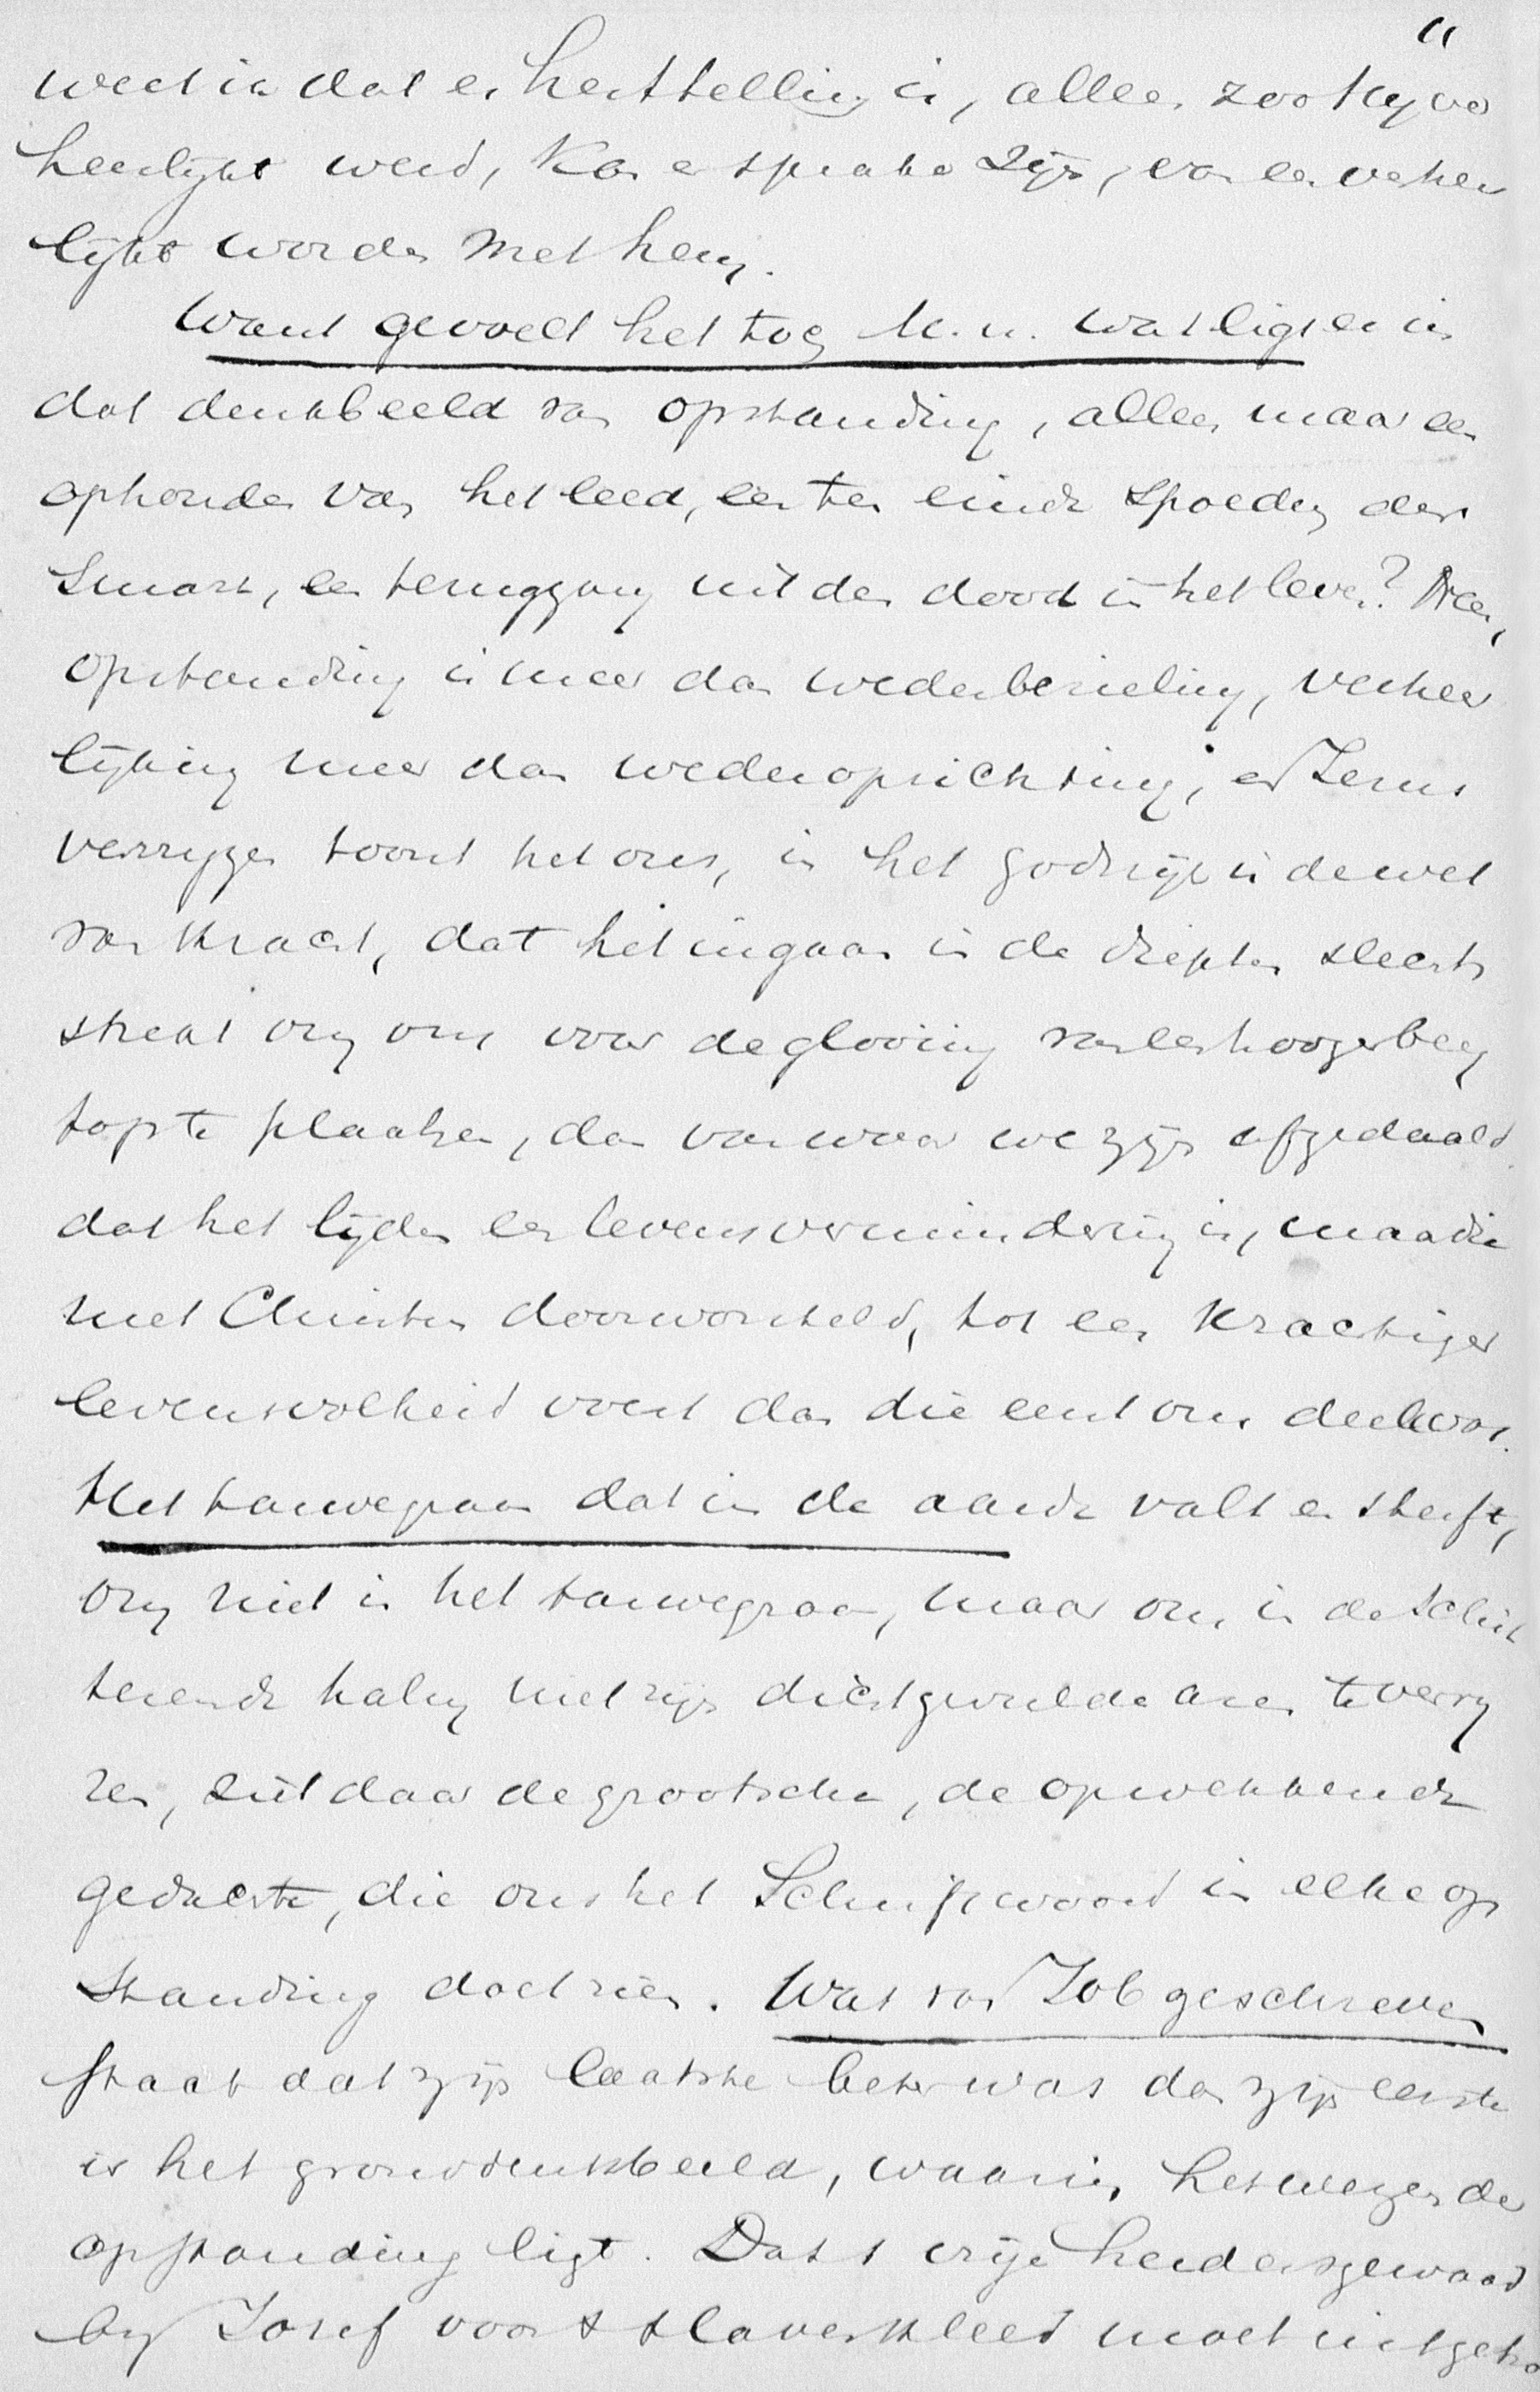 "
weet is dat er herstelling is, alleen zoo hy ver
heerlykt werd, kan er sprake zijn, van een verheer
lijkt worden met hem.
Want gevoelt het toch M. U. wat ligt er in
dat denkbeeld van opstanding, alleen maar een
ophouden van het leed, een ten einde spoeden der
smart, een teruggang uit den dood in het leven? Neen,
opstanding is meer dan wederbezieling, verheer
lijking meer dan wederoprichting, en Jezus
verryzen toont het ons, in het Godsrijk is de wet
van kracht, dat het ingaan in de diepten slechts
strekt om ons voor de glooiing van een hooger berg
top te plaatsen, dan van waar we zijn afgedaald
dat het lijden een levensvermindering is, maar die
met Christus doorworsteld, tot een krachtiger
levensvolheid voert dan die eerst ons deel was.
Het tarwegraan dat in de aarde valt en sterft,
om niet in het tarwegraan, maar om in de schit
terende halm met zijn dichtgevulde aren te verry
zen, ziet daar de grootsche, de opwekkende
gedachte, die ons het Schriftwoord in elke op
standing doet zien. Wat van Job geschreven
staat dat zijn laatste beter was dan zijn eerste
is het gronddenkbeeld, waarin het wezen der
opstanding ligt. Dat 't vrije herdersgewaad
by Josef voor 't slavenkleed moet uitgetro